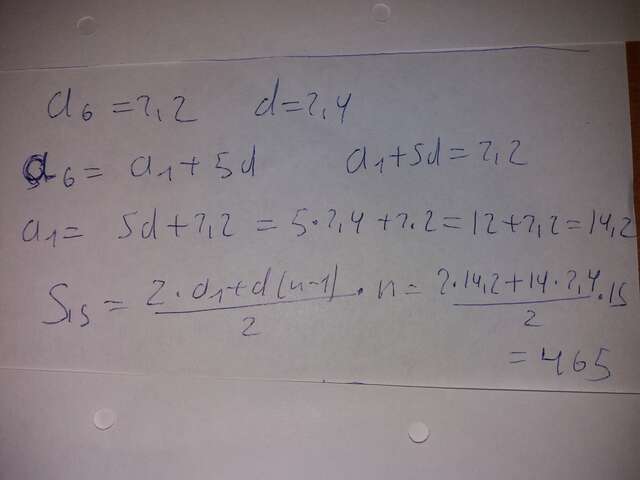 a6 = 2,2 d = 2,4
a6 = a1 + 5d a1 + 5d = 2,2
a1 = 5d + 2,2 = 5·2,4 + 2,2 = 12 + 2,2 = 14,2
S15 = (2·a1 + d(n-1))/2 · n = (2·14,2 + 14·2,4)/2 · 15
= 465